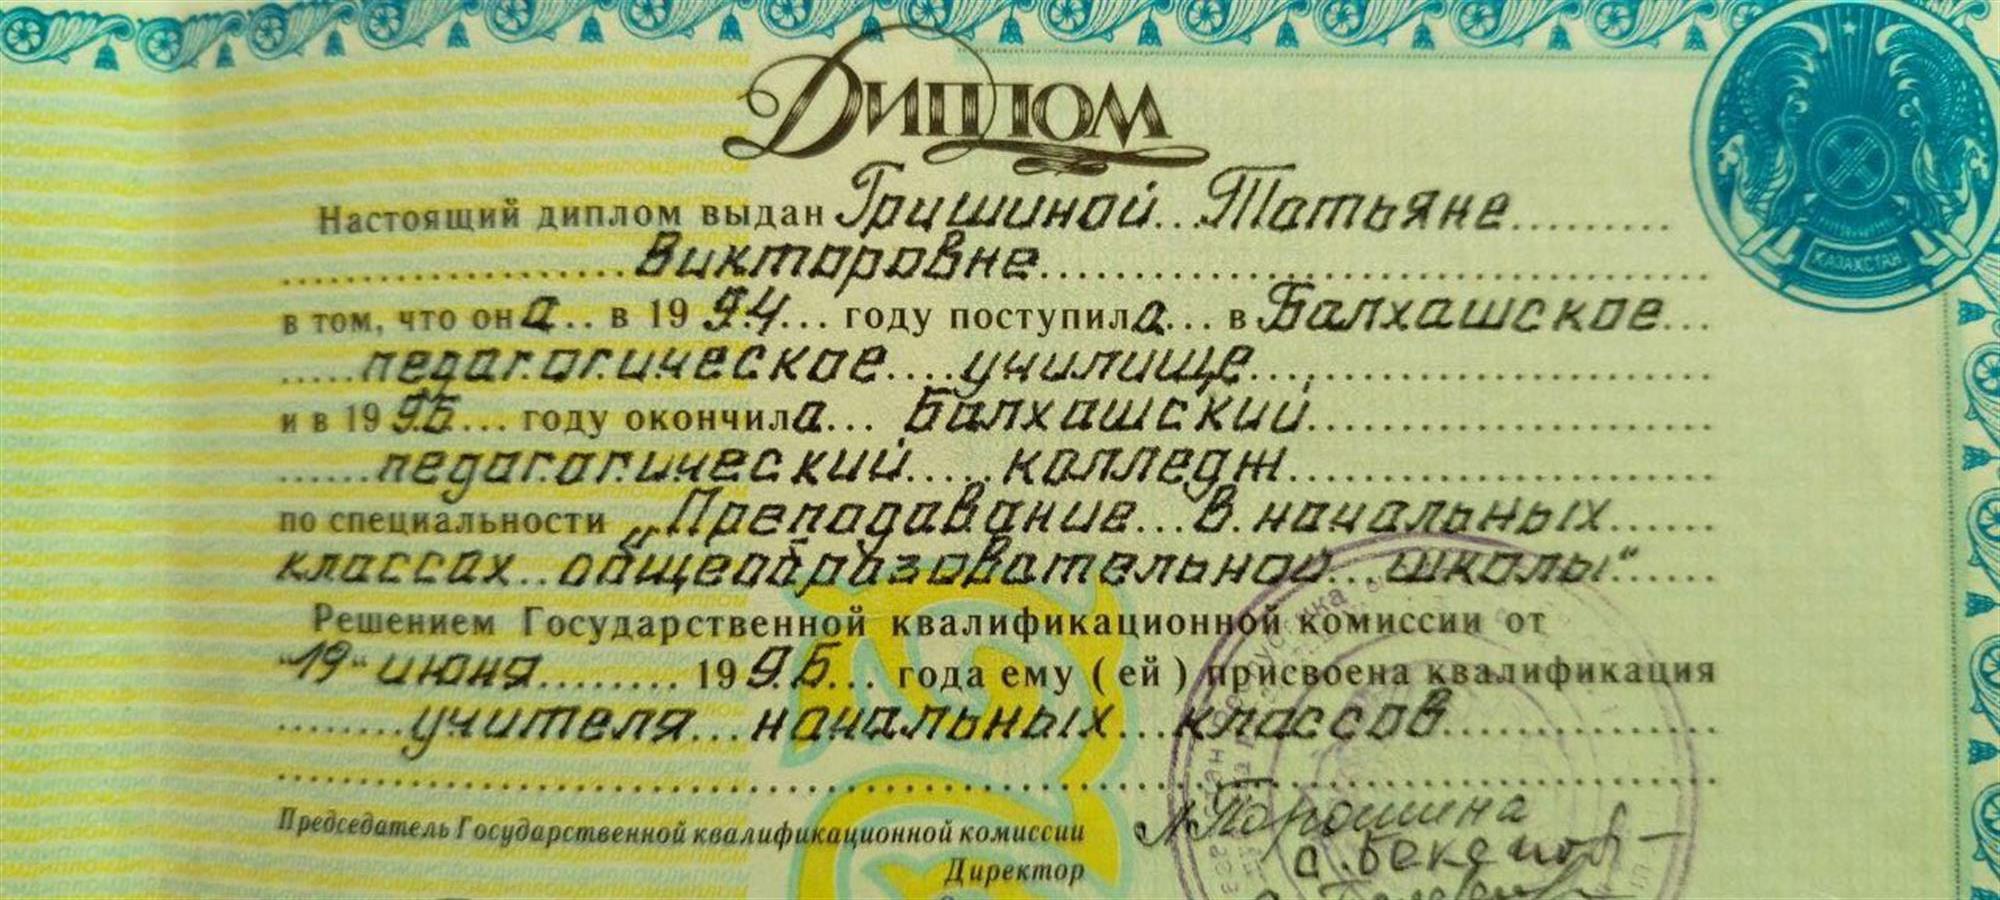 Диплом
КАЗАХСТАН
Настоящий диплом выдан Гришиной Татьяне
Викторовне
в том, что она в 1994 году поступила в Балхашское
педагогическое училище
и в 1995 году окончила Балхашский
педагогический колледж
по специальности „Преподавание в начальных
классах общеобразовательной школы“
Решением Государственной квалификационной комиссии от
"19" июня 1995 года ему ( ей ) присвоена квалификация
учителя начальных классов
Председатель Государственной квалификационной комиссии Порошина
Директор